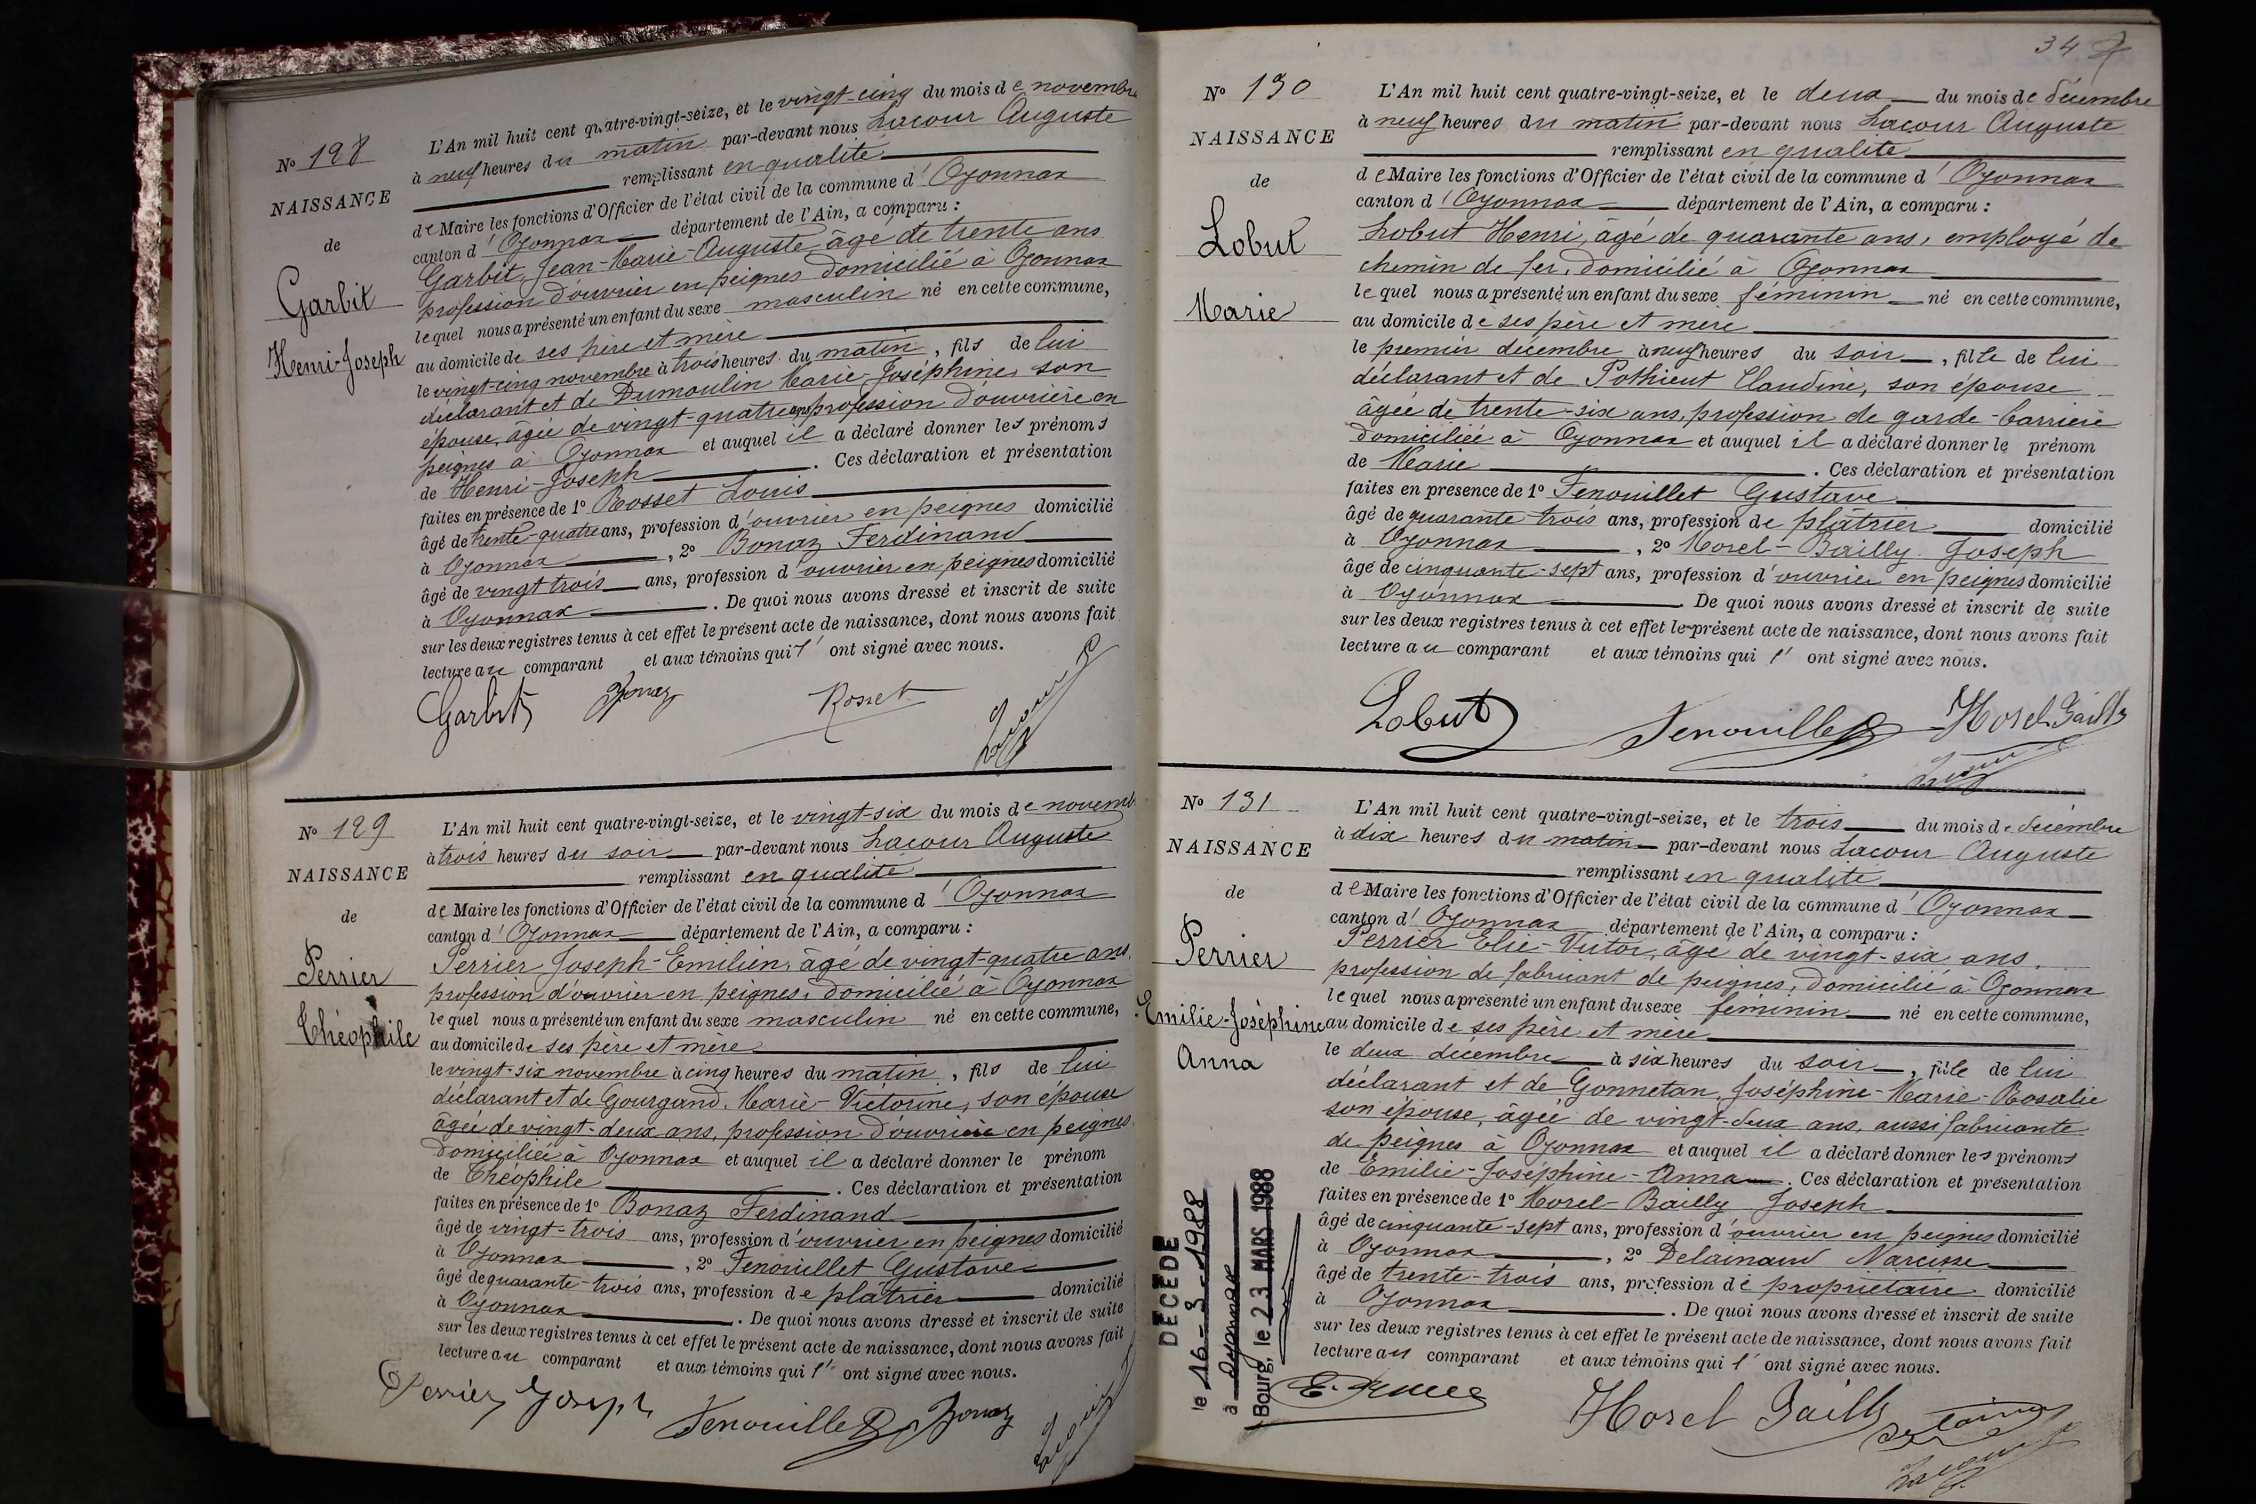 Nº 128
NAISSANCE
de
Garbit
Henri-Joseph
L'An mil huit cent quatre-vingt-seize, et le vingt-cinq du mois de novembre
à neuf heures du matin par-devant nous Lacour Auguste
remplissant en qualité
de Maire les fonctions d'Officier de l'état civil de la commune d'Oyonnax
canton d'Oyonnax département de l'Ain, a comparu :
Garbit, Jean-Marie-Auguste, âgé de trente ans
profession d'ouvrier en peignes domicilié à Oyonnax
lequel nous a présenté un enfant du sexe masculin né en cette commune,
au domicile de ses père et mère
le vingt-cinq novembre à trois heures du matin, fils de lui
déclarant et de Dumoulin Marie-Joséphine, son
épouse, âgée de vingt-quatre ans profession d'ouvrière en
peignes à Oyonnax et auquel il a déclaré donner les prénoms
de Henri-Joseph. Ces déclaration et présentation
faites en présence de 1º Rosset Louis
âgé de trente-quatre ans, profession d'ouvrier en peignes domicilié
à Oyonnax, 2º Bonaz Ferdinand
âgé de vingt trois ans, profession d'ouvrier en peignes domicilié
à Oyonnax. De quoi nous avons dressé et inscrit de suite
sur les deux registres tenus à cet effet le présent acte de naissance, dont nous avons fait
lecture au comparant et aux témoins qui l' ont signé avec nous.
Garbit Bonaz Rosset Lacour
Nº 129
NAISSANCE
de
Perrier
Théophile
L'An mil huit cent quatre-vingt-seize, et le vingt-six du mois de novemb
à trois heures du soir par-devant nous Lacour Auguste
remplissant en qualité
de Maire les fonctions d'Officier de l'état civil de la commune d'Oyonnax
canton d'Oyonnax département de l'Ain, a comparu :
Perrier Joseph-Emilien, âgé de vingt-quatre ans,
profession d'ouvrier en peignes, domicilié à Oyonnax
lequel nous a présenté un enfant du sexe masculin né en cette commune,
au domicile de ses père et mère
le vingt-six novembre à cinq heures du matin, fils de lui
déclarant et de Gourgand, Marie-Victorine, son épouse
âgée de vingt-deux ans, profession d'ouvrière en peignes
domiciliée à Oyonnax et auquel il a déclaré donner le prénom
de Théophile. Ces déclaration et présentation
faites en présence de 1º Bonaz Ferdinand
âgé de vingt-trois ans, profession d'ouvrier en peignes domicilié
à Oyonnax, 2º Fenouillet Gustave
âgé de quarante-trois ans, profession de plâtrier domicilié
à Oyonnax. De quoi nous avons dressé et inscrit de suite
sur les deux registres tenus à cet effet le présent acte de naissance, dont nous avons fait
lecture au comparant et aux témoins qui l' ont signé avec nous.
Perrier Joseph Fenouillet Bonaz Lacour
34
Nº 130
NAISSANCE
de
Lobut
Marie
L'An mil huit cent quatre-vingt-seize, et le deux du mois de décembre
à neuf heures du matin par-devant nous Lacour Auguste
remplissant en qualité
de Maire les fonctions d'Officier de l'état civil de la commune d'Oyonnax
canton d'Oyonnax département de l'Ain, a comparu :
Lobut Henri, âgé de quarante ans, employé de
chemin de fer, domicilié à Oyonnax
lequel nous a présenté un enfant du sexe féminin né en cette commune,
au domicile de ses père et mère
le premier décembre à neuf heures du soir, fille de lui
déclarant et de Pothieut Claudine, son épouse
âgée de trente-six ans, profession de garde-barrière
domiciliée à Oyonnax et auquel il a déclaré donner le prénom
de Marie. Ces déclaration et présentation
faites en présence de 1º Fenouillet Gustave
âgé de quarante trois ans, profession de plâtrier domicilié
à Oyonnax, 2º Morel-Bailly Joseph
âgé de cinquante-sept ans, profession d'ouvrier en peignes domicilié
à Oyonnax. De quoi nous avons dressé et inscrit de suite
sur les deux registres tenus à cet effet le présent acte de naissance, dont nous avons fait
lecture au comparant et aux témoins qui l' ont signé avec nous.
Lobut Fenouillet Morel Bailly
Lacour
Nº 131
NAISSANCE
de
Perrier
Emilie-Joséphine
Anna
L'An mil huit cent quatre-vingt-seize, et le trois du mois de décembre
à dix heures du matin par-devant nous Lacour Auguste
remplissant en qualité
de Maire les fonctions d'Officier de l'état civil de la commune d'Oyonnax
canton d'Oyonnax département de l'Ain, a comparu :
Perrier Elie-Victor, âgé de vingt-six ans,
profession de fabricant de peignes, domicilié à Oyonnax
lequel nous a présenté un enfant du sexe féminin né en cette commune,
au domicile de ses père et mère
le deux décembre à six heures du soir, fille de lui
déclarant et de Gonnetan, Joséphine-Marie-Rosalie
son épouse, âgée de vingt-deux ans, aussi fabricante
de peignes à Oyonnax et auquel il a déclaré donner les prénoms
de Emilie-Joséphine-Anna. Ces déclaration et présentation
faites en présence de 1º Morel-Bailly Joseph
âgé de cinquante-sept ans, profession d'ouvrier en peignes domicilié
à Oyonnax, 2º Delainaud Narcisse
âgé de trente-trois ans, profession de propriétaire domicilié
à Oyonnax. De quoi nous avons dressé et inscrit de suite
sur les deux registres tenus à cet effet le présent acte de naissance, dont nous avons fait
lecture au comparant et aux témoins qui l' ont signé avec nous.
Morel Bailly
Lacour
DÉCÉDÉ
le 16-3-1988
à Oyonnax
Bourg, le 23 MARS 1988